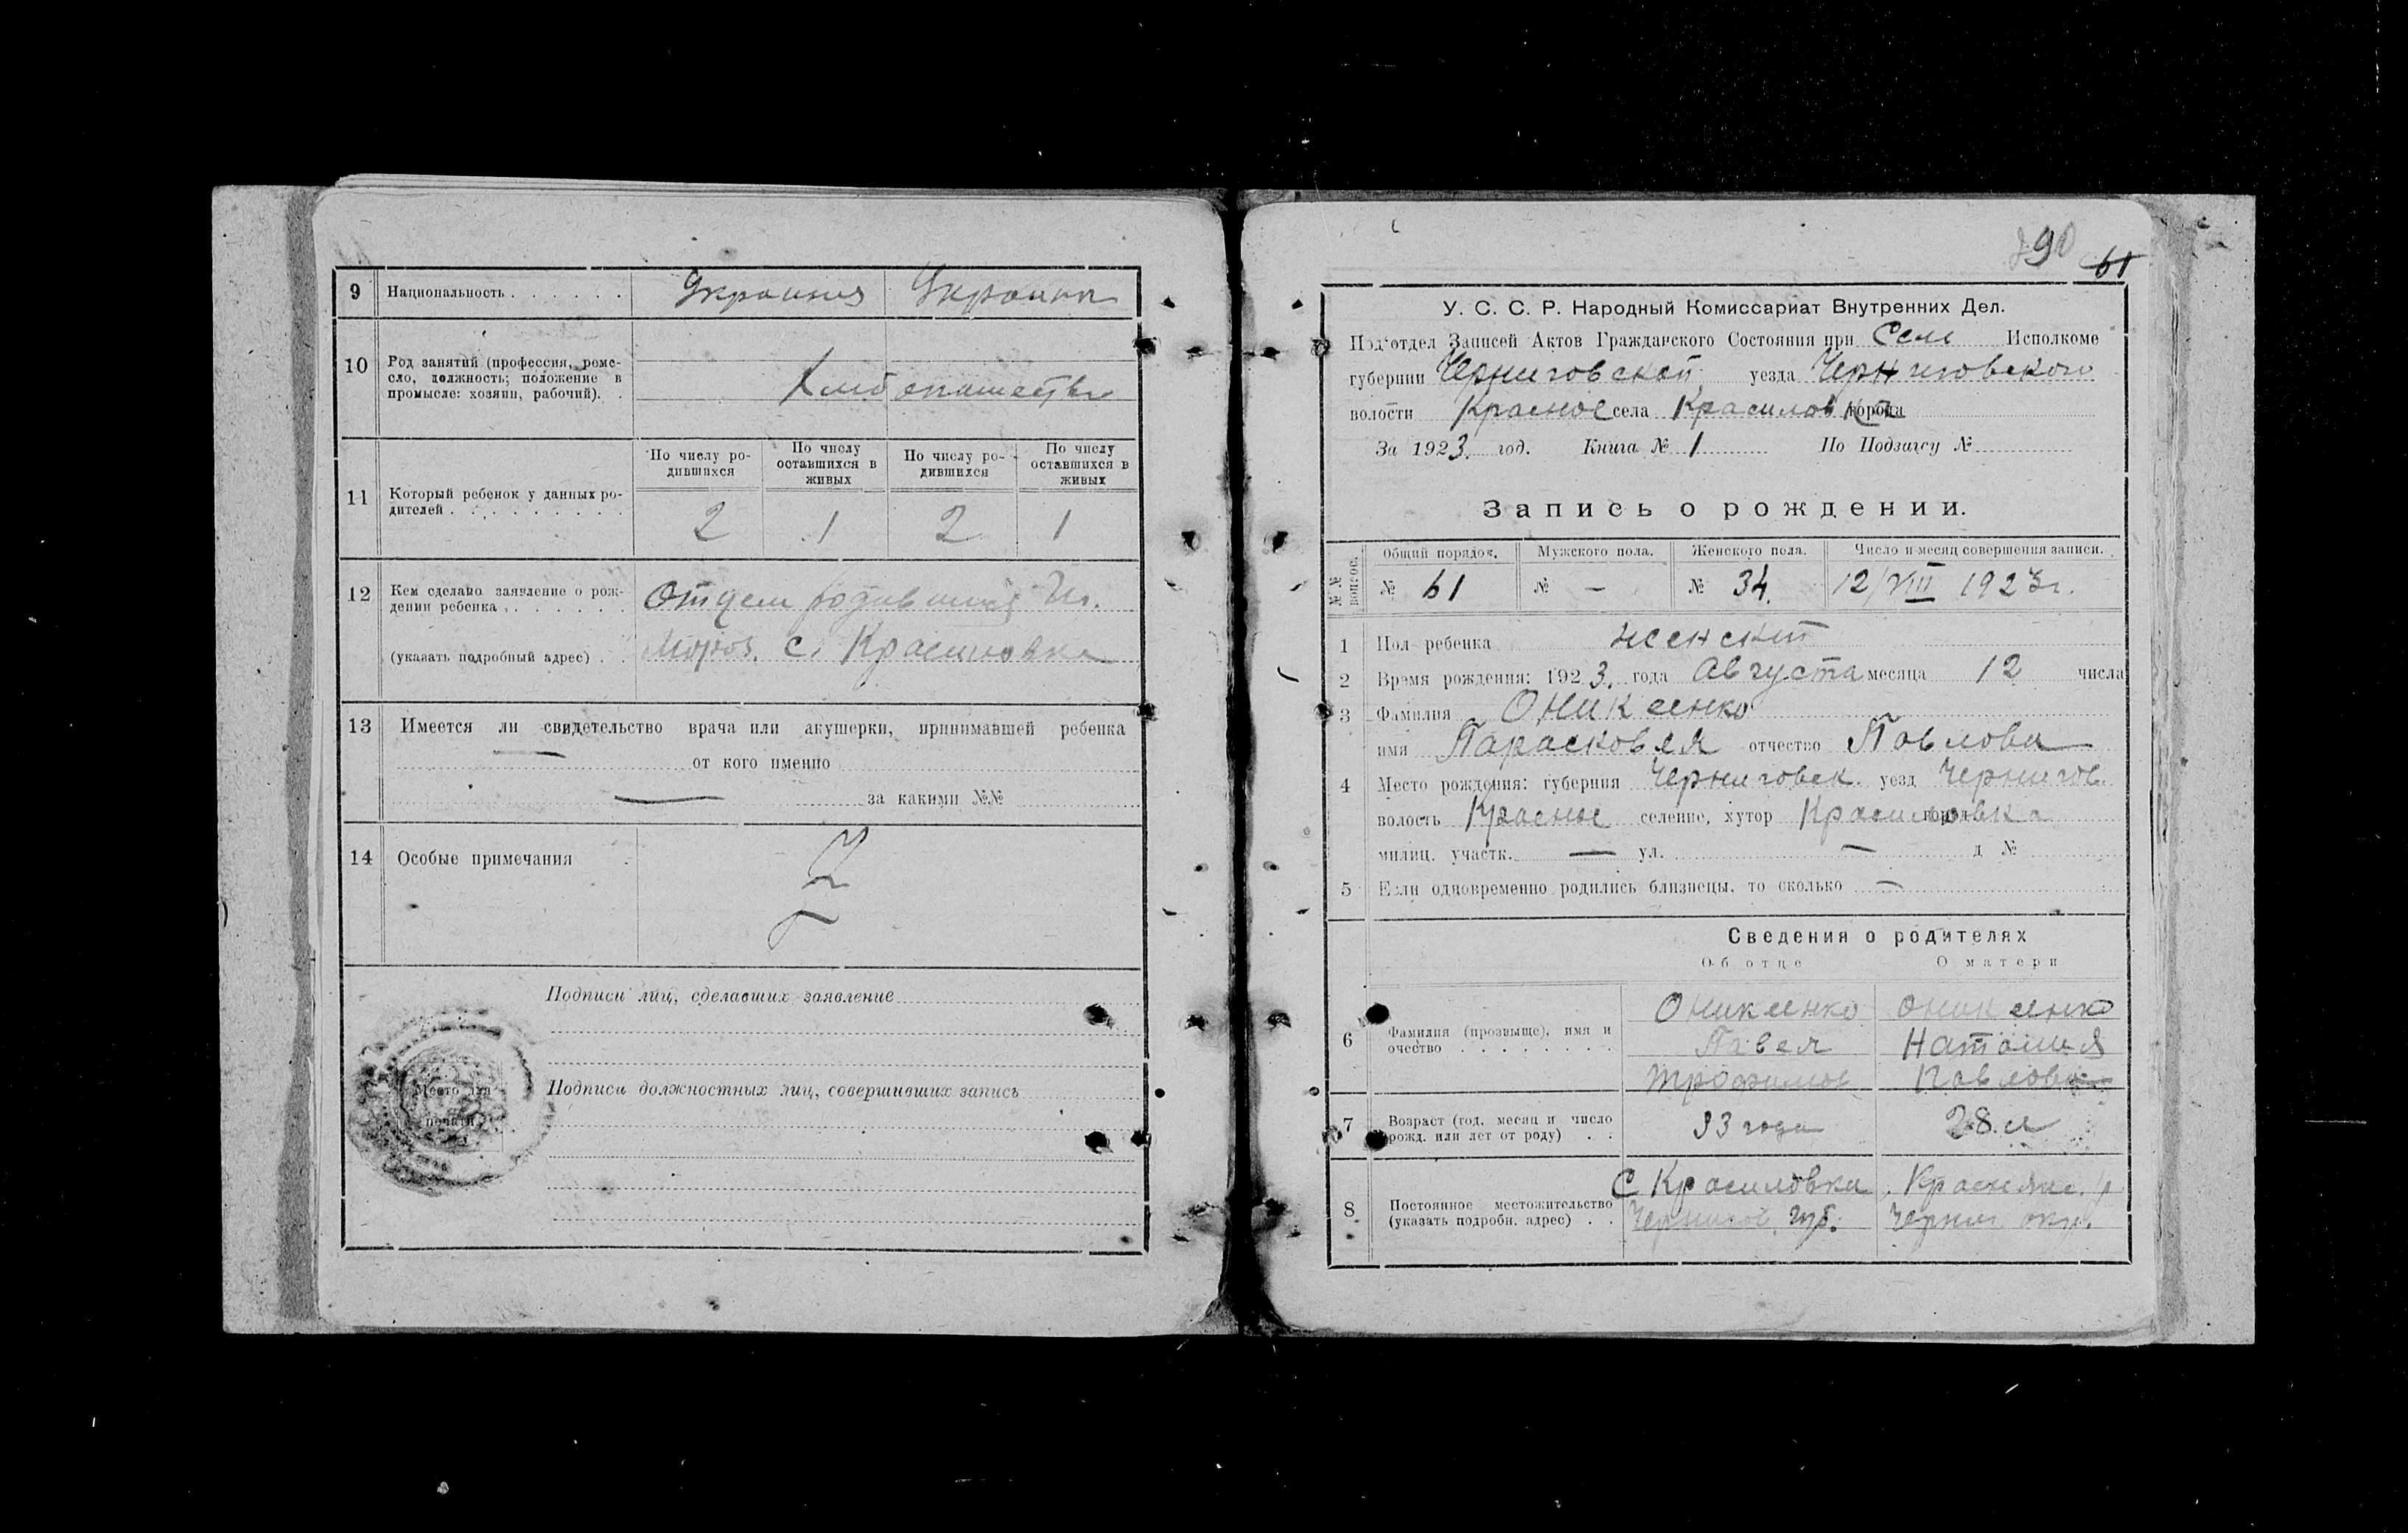 9 Национальность . . . . . . Украиния Украини
10 Род занятий (профессия, реме-
сло, должность; положение в
промысле: хозяин, рабочий). .
Хлибопашество
11 Который ребенок у данных ро-
дителей . . . . . . . . .
По числу ро-
дившихся
По числу
оставшихся в
живых
По числу ро-
дившихся
По числу
оставшихся в
живых
2 1 2 1
12 Кем сделано заявление о рож-
дении ребенка . . . . . .
Отцем
(указать подробный адрес) . . с. Красиловка
13 Имеется ли свидетельство врача или акушерки, принимавшей ребенка
—
от кого именно
— за какими №№
14 Особые примечания
Подписи лиц, сделавших заявление
Место для
печати
Подписи должностных лиц, совершивших запись
90 61
У. С. С. Р. Народный Комиссариат Внутренних Дел.
Подотдел Записей Актов Гражданского Состояния при Сель Исполкоме
губернии Черниговской уезда Черниговского
волости Красное села Красиловка города
За 1923. год. Книга № 1 По Подзагсу №
Запись о рождении.
№№ вопрос.
Общий порядок. Мужского пола. Женского пола. Число и месяц совершения записи.
№ 61 № — № 34. 12/VIII 1923г.
1 Пол ребенка женский
2 Время рождения: 1923. года Августа месяца 12 числа
3 Фамилия Оникиенко
имя Парасковея отчество Павлова
4 Место рождения: губерния Черниговск. уезд Чернигов.
волость Красное селение, хутор Красиловка город
милиц. участк. — ул. — д №
5 Если одновременно родились близнецы, то сколько —
Сведения о родителях
Об отце О матери
6 Фамилия (прозвище), имя и
очество . . . . . . . .
Оникиенко Оникиенко
Павел Наталия
Трофимов Павлова
7 Возраст (год, месяц и число
рожд. или лет от роду) . .
33 года 28 л
8 Постоянное местожительство
(указать подробн. адрес) . .
С Красиловка
Чернигов. губ. Черниг. окр.